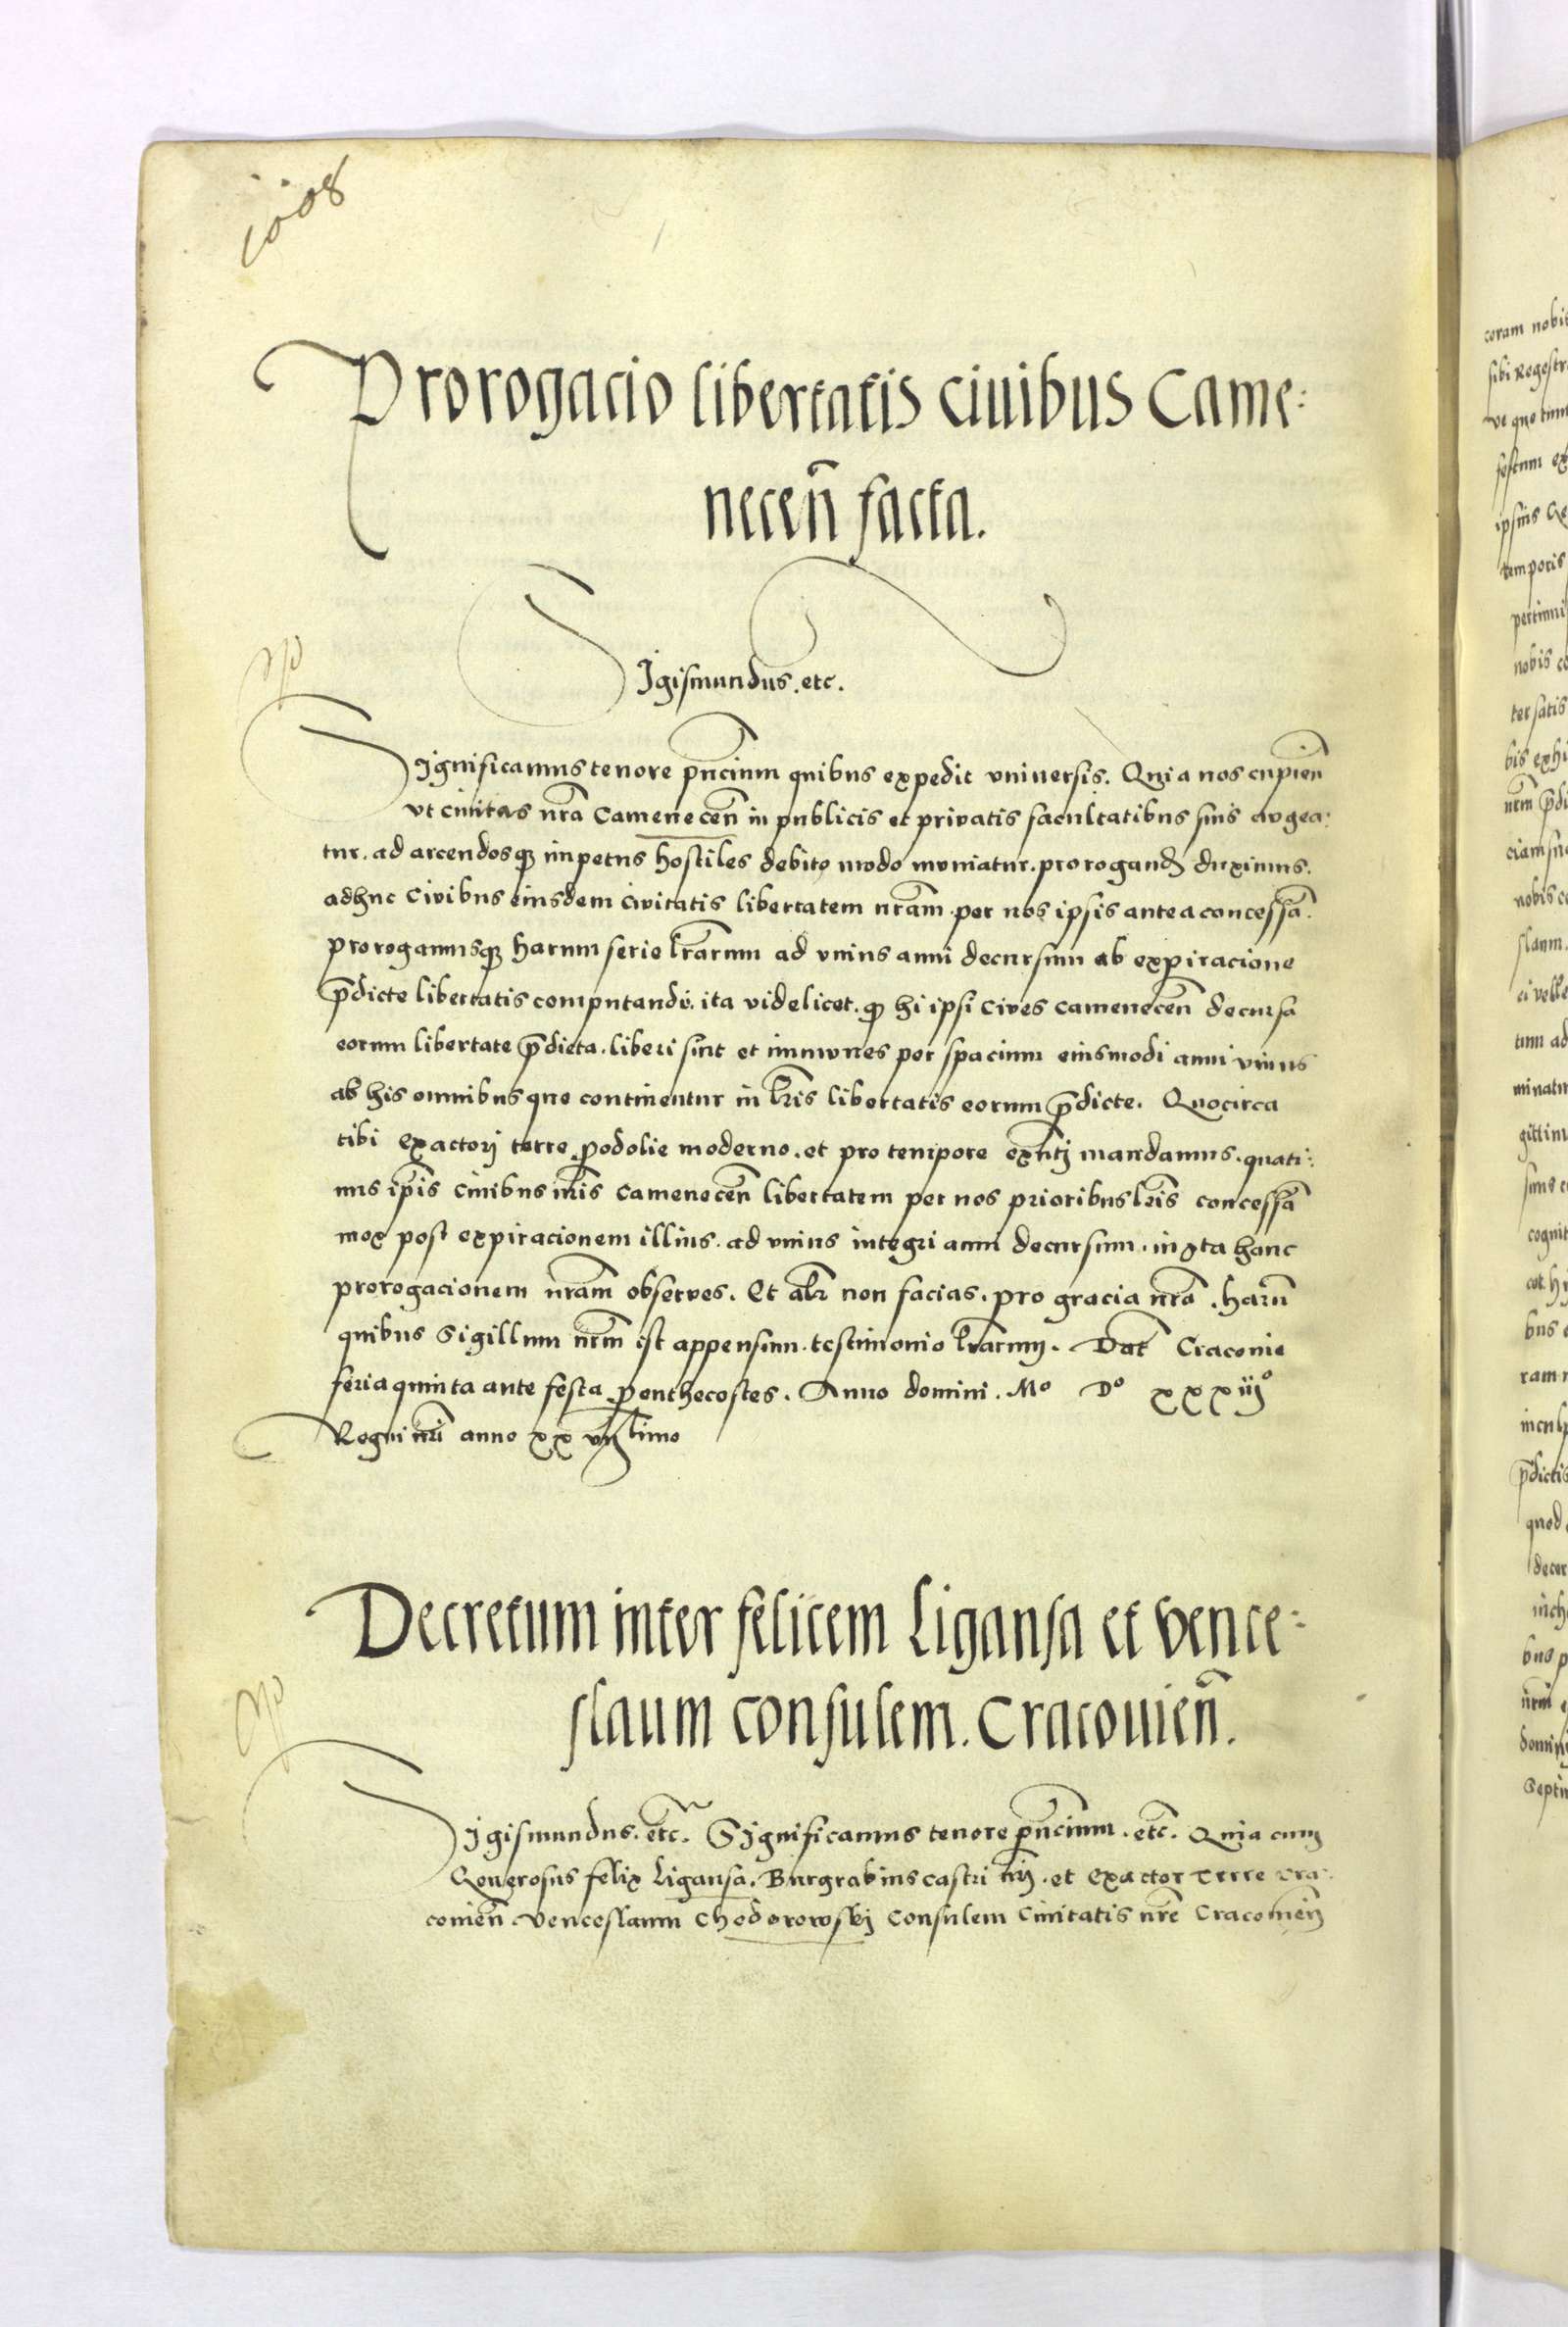 1008
Prorogacio libertatis ciuibus Came:
necen̄ facta.
Sigismundus. etc.
Significamus tenore pn̄cium quibus expedit vniuersis. Quia nos cupien̄
vt ciuitas nr̄a Camenecen̄ in publicis et priuatis facultatibus suis augea:
tur. ad arcendosqꝫ impetus hostiles debito modo muniatur. prorogand̄ duximus.
adhuc Civibus eiusdem civitatis libertatem nr̄am per nos ipsis antea concessā.
prorogamusqꝫ harum serie lr̄arum ad vnius anni decursum ab expiracione
p̄dicte libertatis computandi. ita videlicet. ꝙ hi ipsi Cives Camenecen̄ decursa
eorum libertate p̄dicta. liberi sint et immunes per spacium eiusmodi anni vnius
ab his omnibus que continentur in lr̄is libertatis eorum p̄dicte. Quocirca
tibi exactorj terre podolie moderno. et pro tempore exn̄tj mandamus. quati:
nus ip̄is Ciuibus nr̄is Camenecen̄ libertatem per nos prioribus lr̄is concessā
mox post expiracionem illius. ad vnius integri anni decursum. iuxta hanc
prorogacionem nr̄am observes. Et alr̄ non facias. pro gracia nr̄a. harū
quibus Sigillum nr̄m est appensum. testimonio lr̄arum. Dat̄ Cracouie
feria quinta ante festa penthecostes. Anno domini. Mº Dº xxxiijº
Regni nr̄i anno xx vijtimo
Decretum inter felicem Ligansa et vence:
slaum consulem. Cracouien̄.
Sigismundus. etc̄. Significamus tenore pn̄cium. etc̄. Quia cum
Generosus felix Ligansa. Burgrabius castri nr̄j. et Exactor Terre Cra:
couien̄ venceslaum Chodorowskj Consulem Ciuitatis nr̄e Cracouien̄
coram nobis
sibi Regestr
temporis
nobis
ter satis
bis exhi
nobis
slaum.
tum ad
cognit
ram
p̄dictis
quod